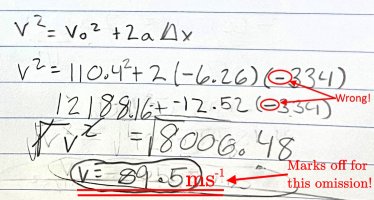 v² = v₀² + 2a Δx
v² = 110.4² + 2 (-6.26) (-334)
Wrong!
12188.16 + -12.52 (-334)
√v² = √8006.48
v = 89.5 ms⁻¹
Marks off for
this omission!